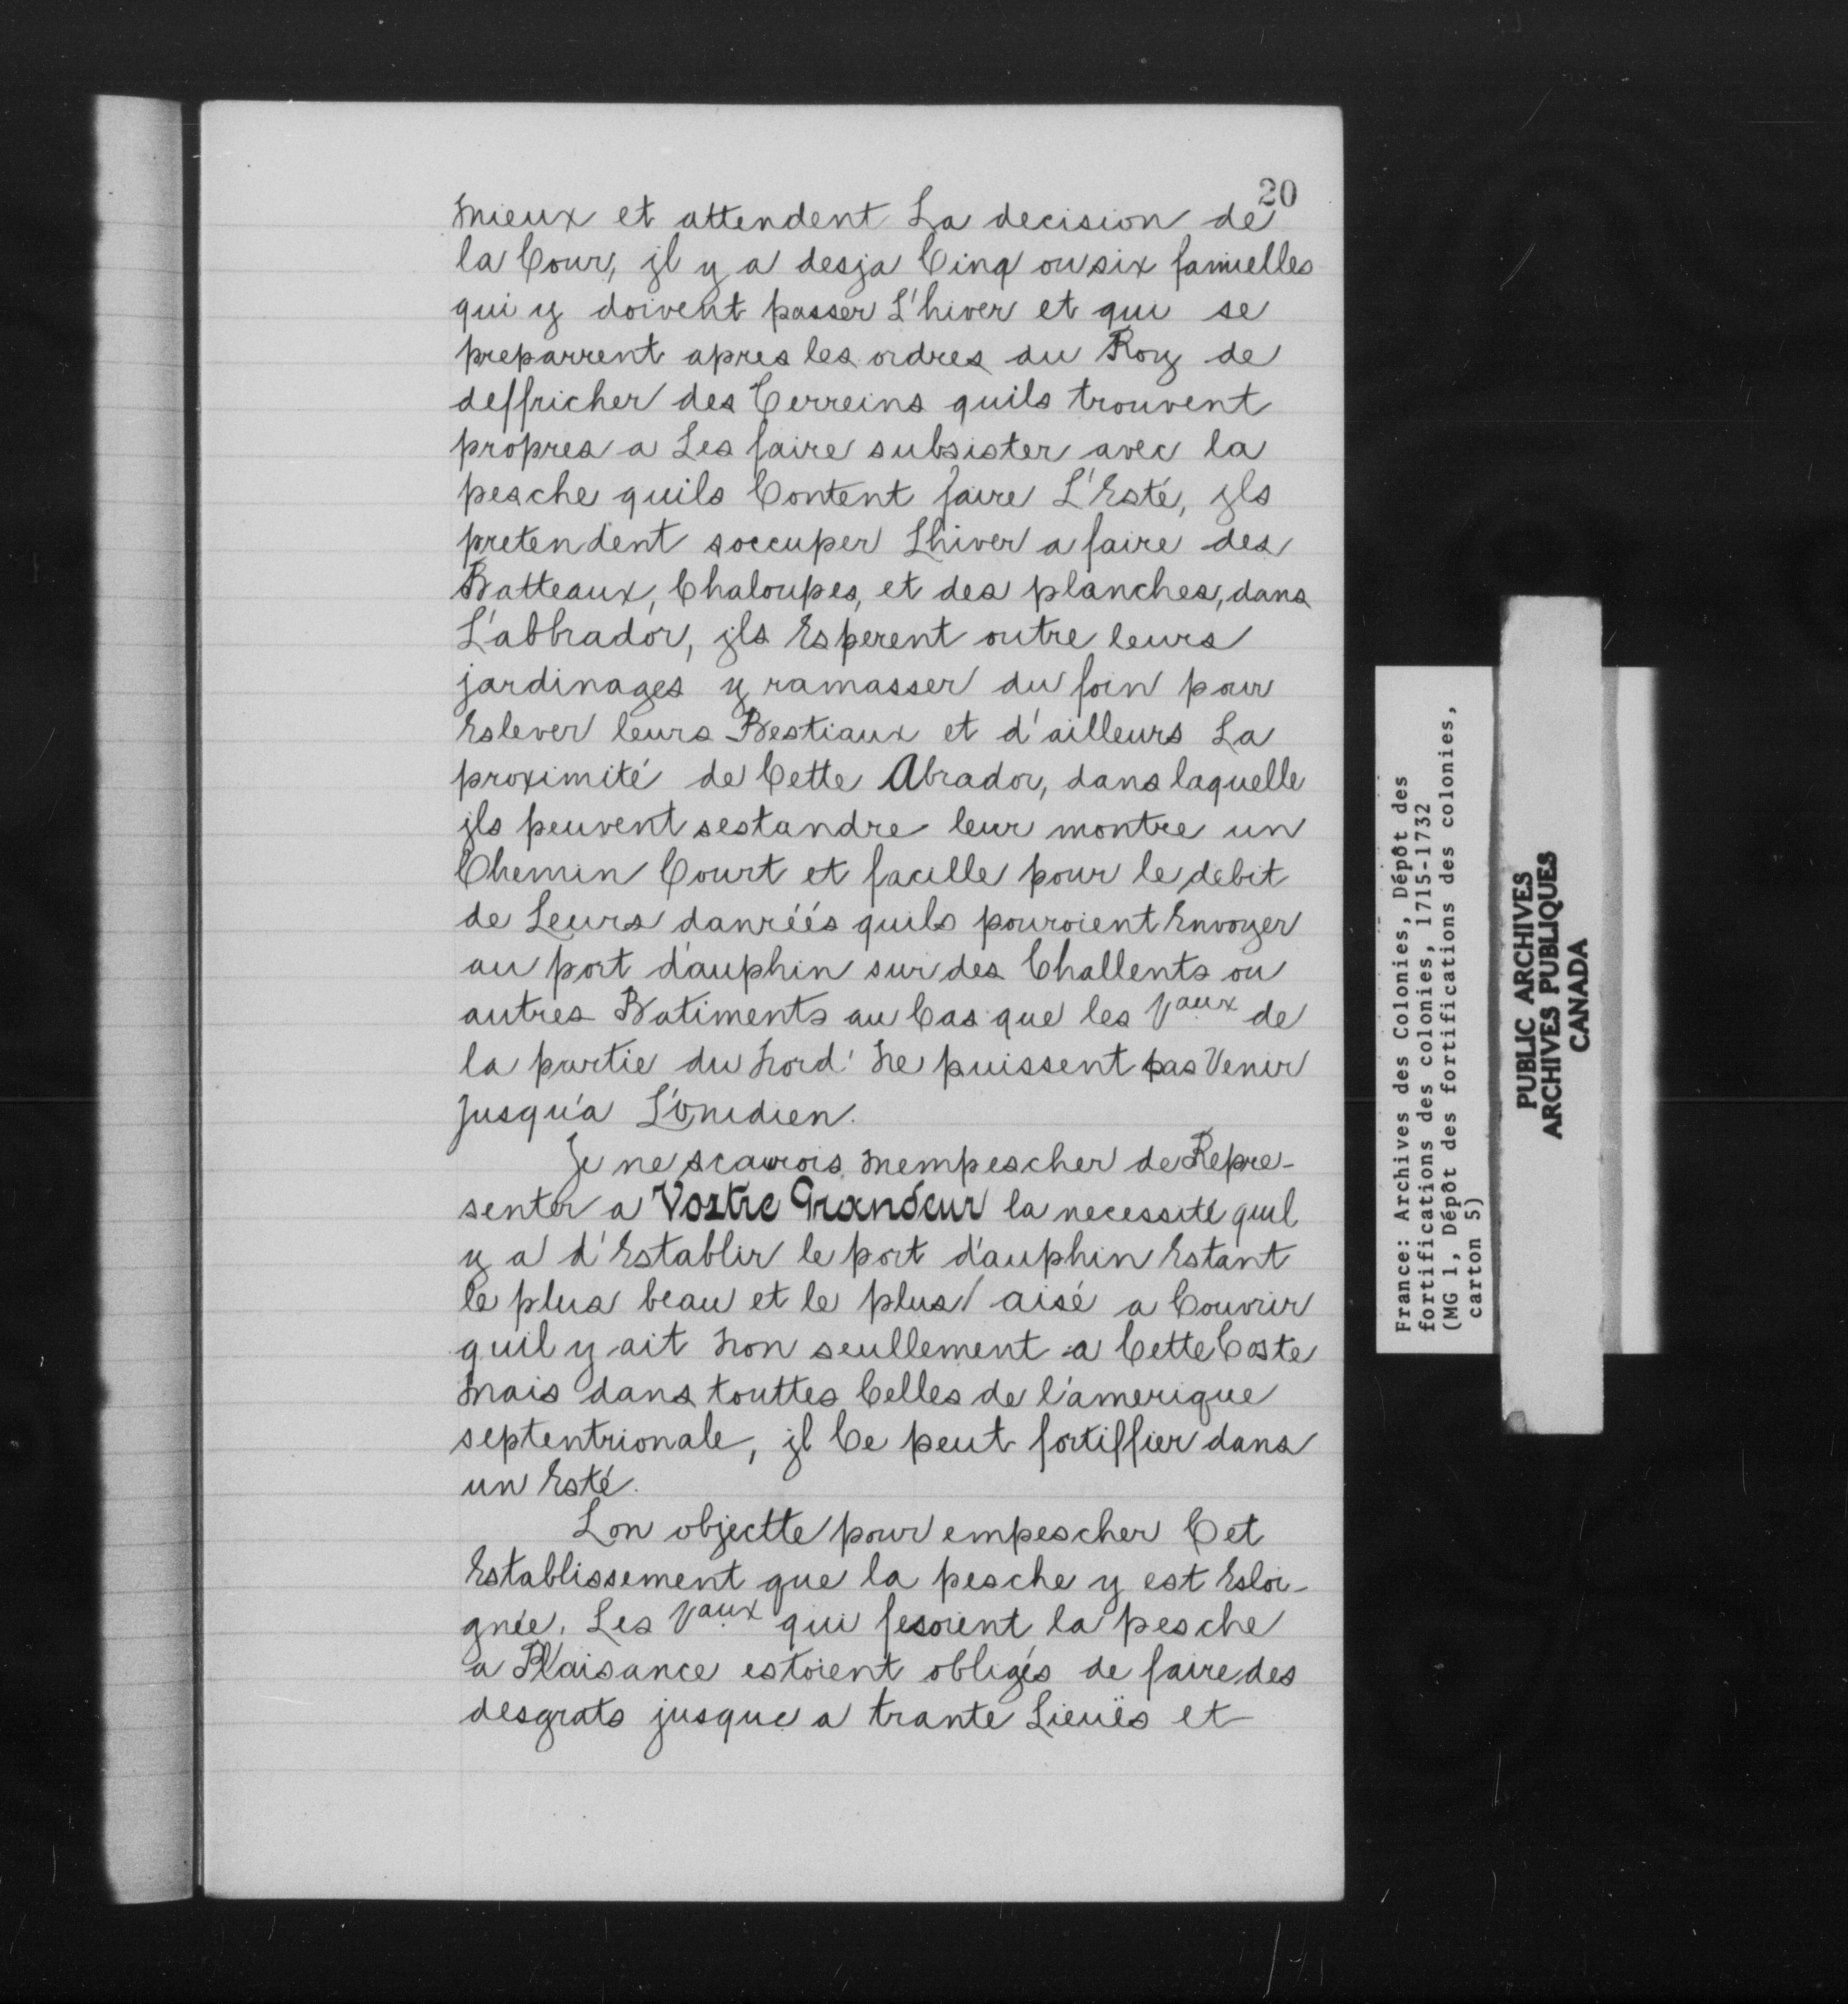 20
mieux et attendent La decision de
la Cour, jl y a desja Cinq ou six famielles
qui y doivent passer L'hiver et qui se
preparrent apres les ordres du Roy de
deffricher des Terreins quils trouvent
propres a Les faire subsister avec la
pesche quils Content faire L'Esté, jls
pretendent soccuper Lhiver a faire des
Batteaux, Chaloupes, et des planches, dans
L'abbrador, jls Esperent outre leurs
jardinages y ramasser du foin pour
Eslever leurs Bestiaux et d'ailleurs La
proximité de Cette Abrador, dans laquelle
jls peuvent sestandre leur montre un
Chemin Court et facille pour le debit
de Leurs danréés quils pouroient Envoyer
au port d'auphin sur des Challents ou
autres Batiments au Cas que les Vaux de
la partie du Nord Ne puissent pas Venir
Jusqu'a
Je ne scaurois Mempescher de Repre-
senter a Vostre Grandeur la necessité quil
y a d'Establir le port d'auphin Estant
le plus beau et le plus aisé a Couvrir
quil y ait Non seullement a Cette Coste
Mais dans touttes Celles de l'amerique
septentrionale, jl Ce peut fortiffier dans
un Esté.
Lon objectte pour empescher Cet
Establissement que la pesche y est Esloi-
gnée. Les Vaux qui fesoient la pesche
a Plaisance estoient obligés de faire des
desgrats jusque a trante Lieuës et
France: Archives des Colonies, Dépôt des
fortifications des colonies, 1715-1732
(MG 1, Dépôt des fortifications des colonies,
carton 5)
PUBLIC ARCHIVES
ARCHIVES PUBLIQUES
CANADA